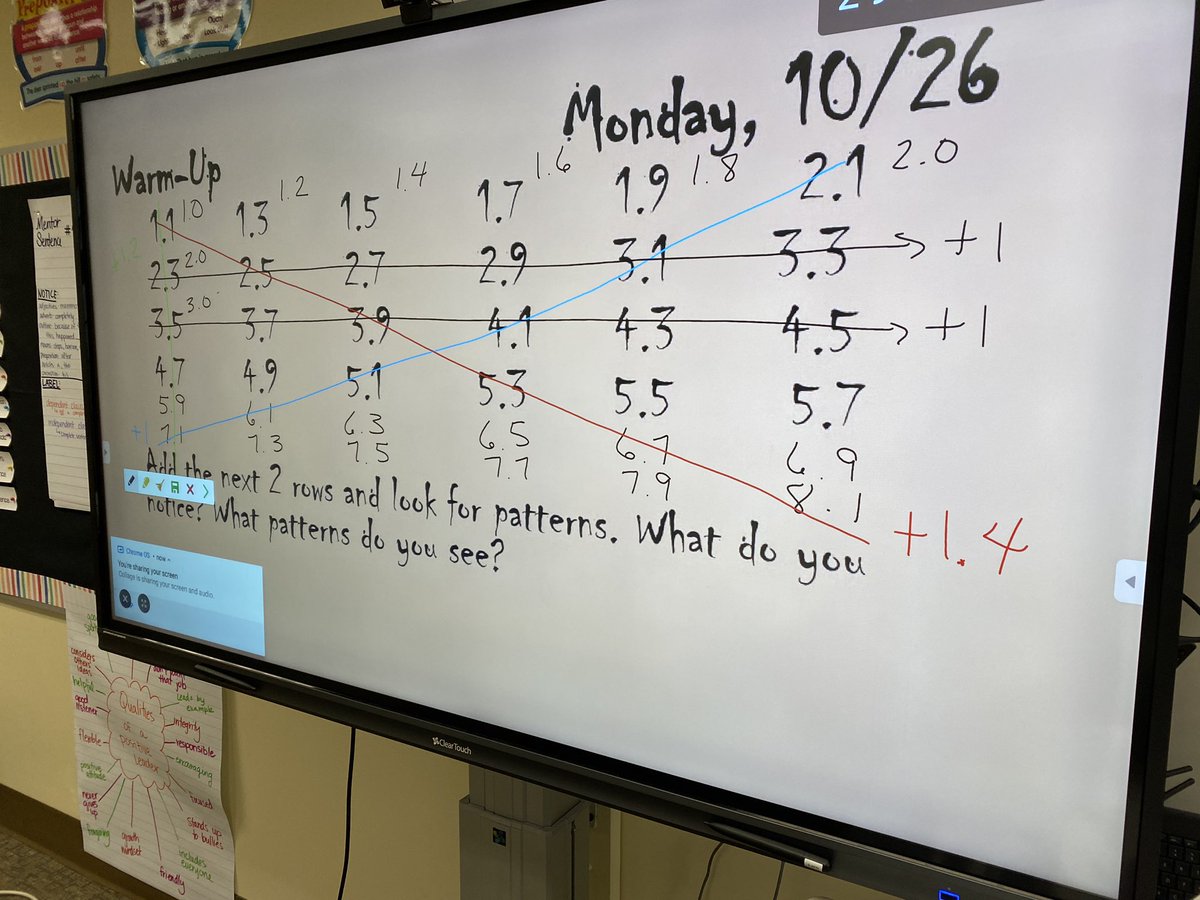 Monday, 10/26
Warm-Up
1.1 1.0 1.3 1.2 1.5 1.4 1.7 1.6 1.9 1.8 2.1 2.0
+1.2
2.3 2.0 2.5 2.7 2.9 3.1 3.3 +1
3.5 3.0 3.7 3.9 4.1 4.3 4.5 +1
4.7 4.9 5.1 5.3 5.5 5.7
5.9 6.1 6.3 6.5 6.7 6.9
+1 7.1 7.3 7.5 7.7 7.9 8.1
+1.4
Add the next 2 rows and look for patterns. What do you
notice? What patterns do you see?
Chrome OS • now
You're sharing your screen
Collage is sharing your screen and audio.
ClearTouch
Mentor
Sentence
#
NOTICE:
LABEL:
independent clause
The deer sprinted up the hill
Qualities
of a
positive
leader
considers
others
ideas
helpful
good
listener
flexible
positive
attitude
never
gives
up
forgiving
growth
mindset
friendly
includes
everyone
stands up
to bullies
focused
encouraging
responsible
integrity
leads by
example
that job